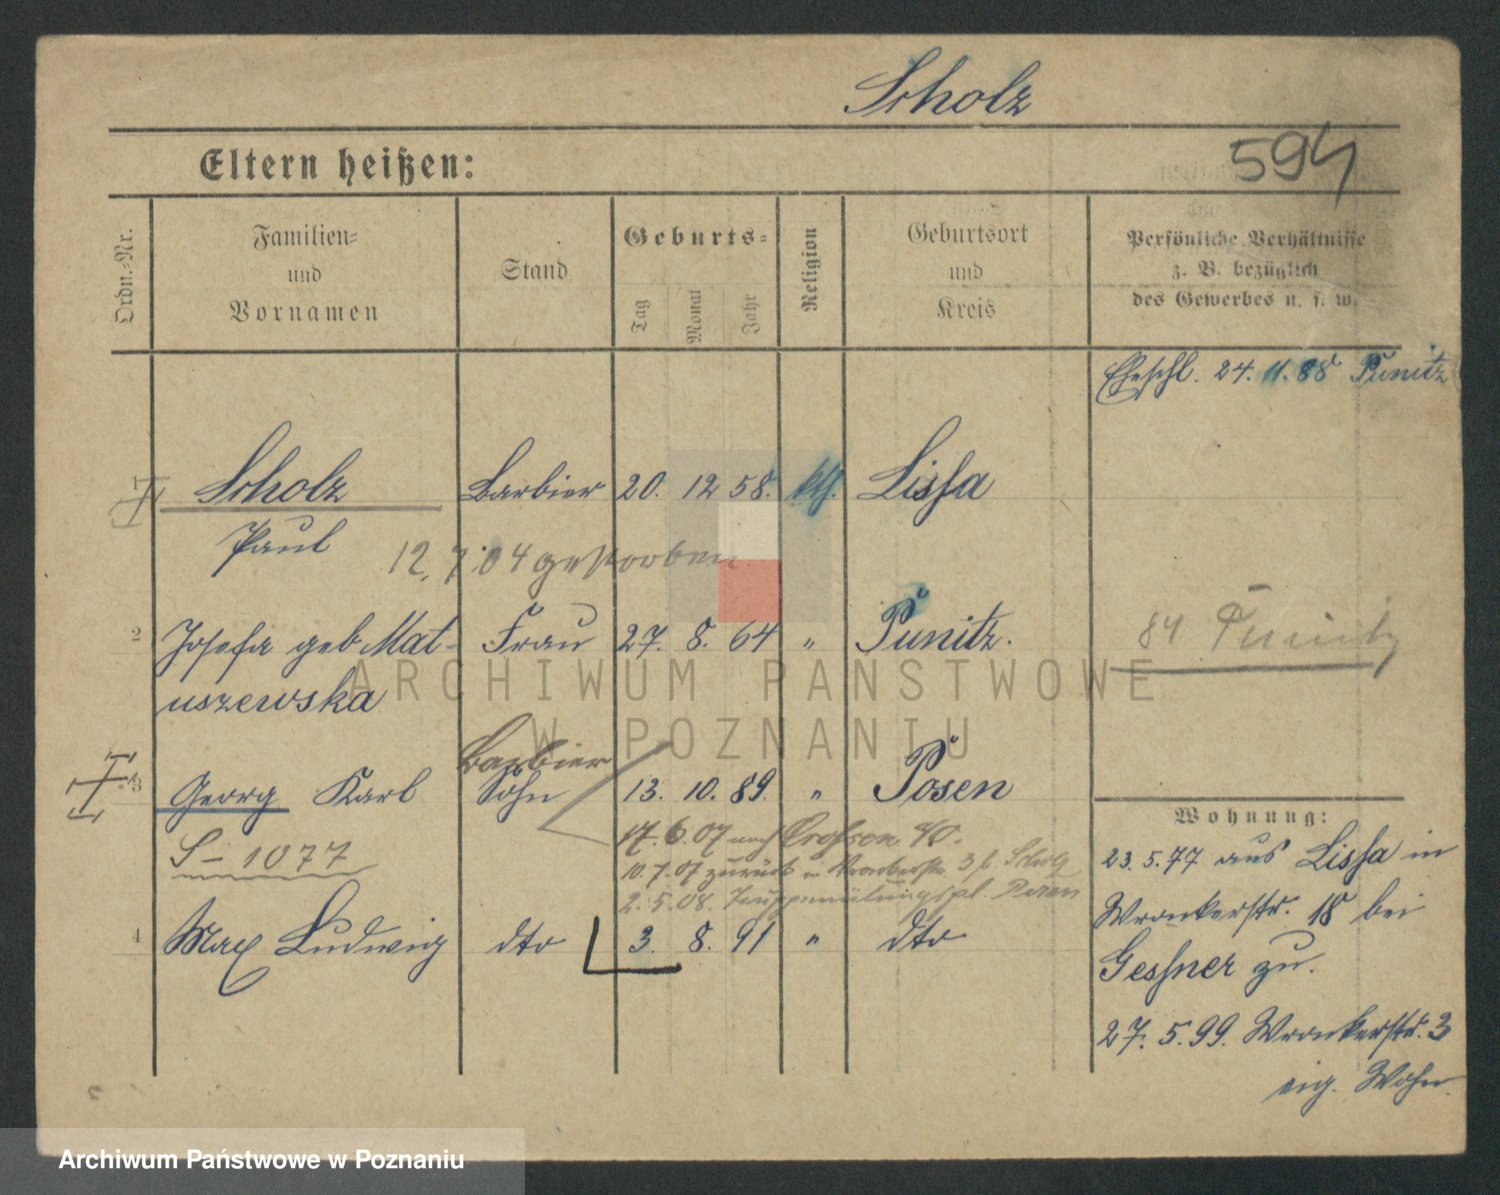 Scholz
594
Eltern heißen:
Ordn.-Nr.
Familien-
und
Vornamen
Stand
Geburts-
Tag
Monat
Jahr
Religion
Geburtsort
und
Kreis
Persönliche Verhältnisse
z. B. bezüglich
des Gewerbes u. s. w.
Eheschl. 24. 11. 88 Punitz
Scholz Barbier 20. 12 58. kth. Lissa
Paul
12. 7. 04 gestorben
2 Josefa geb. Mat- Frau 27. 8. 64 " Punitz.
84 Punitz
uszewska
ARCHIWUM PAŃSTWOWE
W POZNANIU
Barbier
3 Georg Karl Sohn 13. 10. 89. " Posen
S-1077
17. 6. 07 nach Crossen a/O.
10. 7. 07 zurück Wronkerstr. 3 b. Scholz
2. 5. 08. Truppenübungspl.
4 Max Ludwig dto 3. 8. 91 " dto
Wohnung:
23. 5. 77 aus Lissa in
Wronkerstr. 18 bei
Gessner zu.
27. 5. 99. Wronkerstr. 3
eig. Wohn.
Archiwum Państwowe w Poznaniu